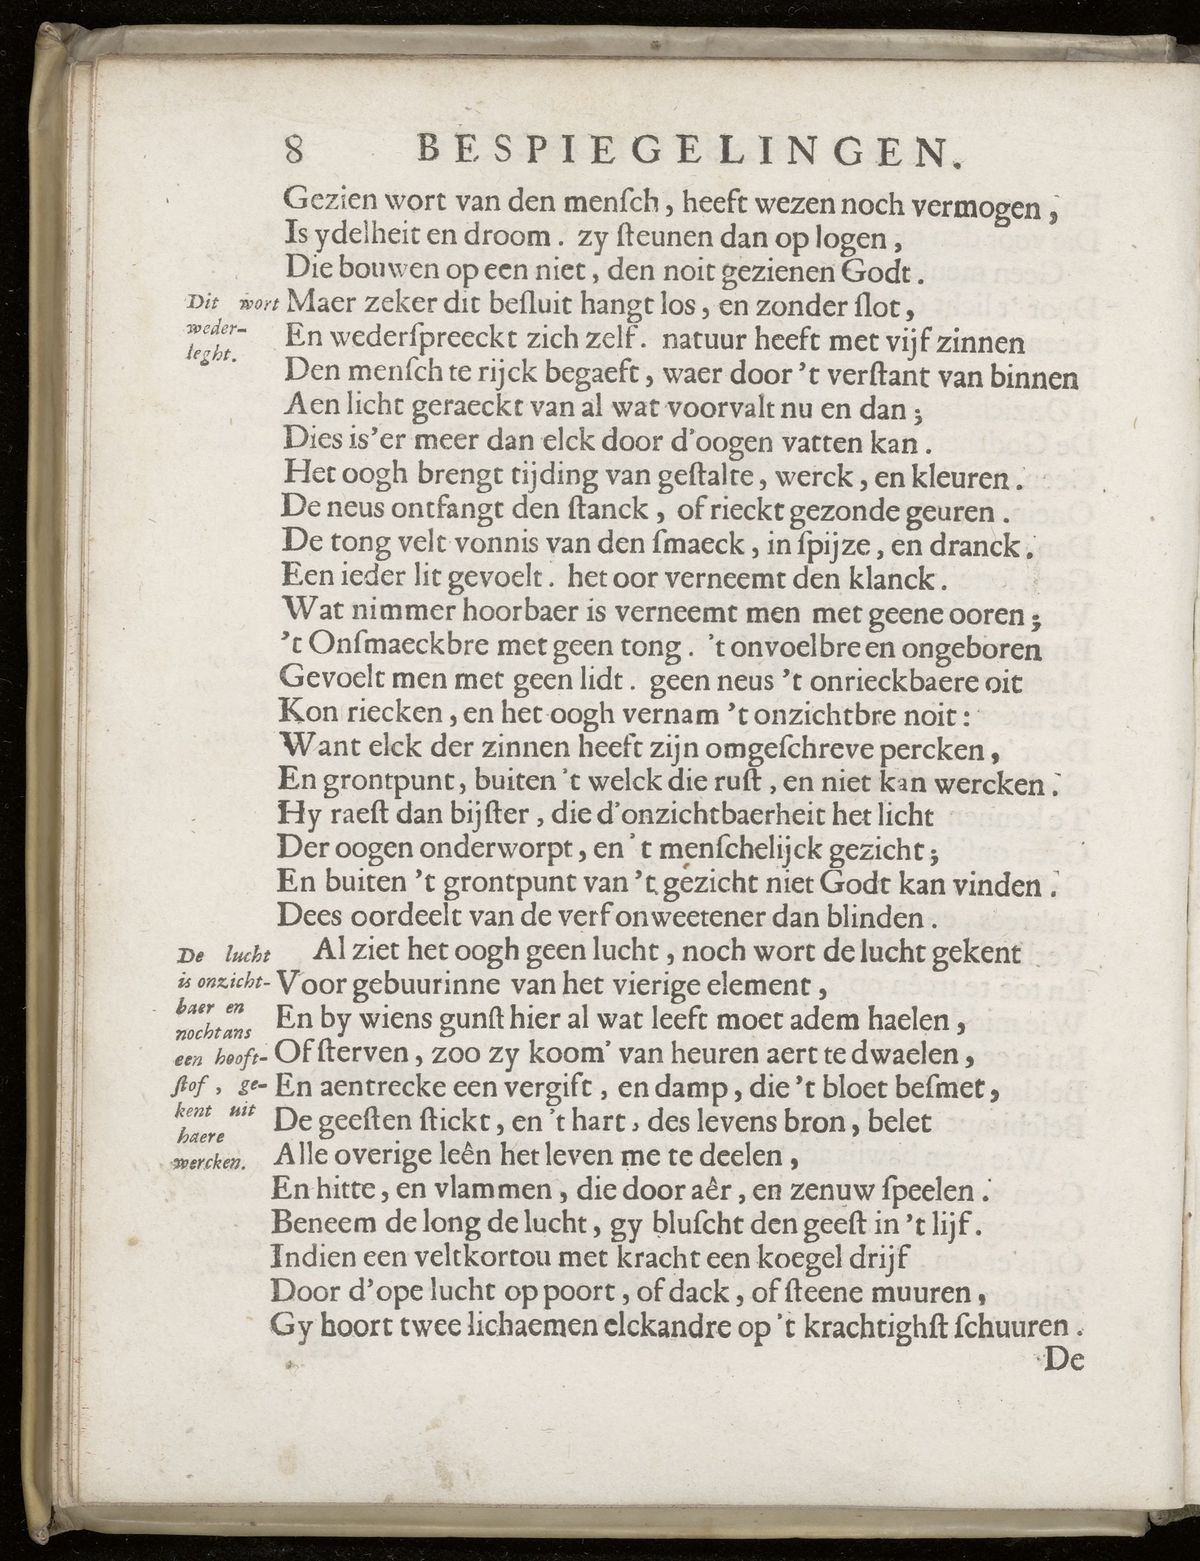 8 BESPIEGELINGEN.
Gezien wort van den menſch, heeft wezen noch vermogen,
Is ydelheit en droom. zy ſteunen dan op logen,
Die bouwen op een niet, den noit gezienen Godt.
Dit wort
weder-
leght.
Maer zeker dit beſluit hangt los, en zonder ſlot,
En wederſpreeckt zich zelf. natuur heeft met vijf zinnen
Den menſch te rijck begaeft, waer door 't verſtant van binnen
Aen licht geraeckt van al wat voorvalt nu en dan;
Dies is'er meer dan elck door d'oogen vatten kan.
Het oogh brengt tijding van geſtalte, werck, en kleuren.
De neus ontfangt den ſtanck, of rieckt gezonde geuren.
De tong velt vonnis van den ſmaeck, in ſpijze, en dranck.
Een ieder lit gevoelt. het oor verneemt den klanck.
Wat nimmer hoorbaer is verneemt men met geene ooren;
't Onſmaeckbre met geen tong. 't onvoelbre en ongeboren
Gevoelt men met geen lidt. geen neus 't onrieckbaere oit
Kon riecken, en het oogh vernam 't onzichtbre noit:
Want elck der zinnen heeft zijn omgeſchreve percken,
En grontpunt, buiten 't welck die ruſt, en niet kan wercken.
Hy raeſt dan bijſter, die d'onzichtbaerheit het licht
Der oogen onderworpt, en 't menſchelijck gezicht;
En buiten 't grontpunt van 't gezicht niet Godt kan vinden.
Dees oordeelt van de verf onweetener dan blinden.
De lucht
is onzicht-
baer en
nochtans
een hooft-
ſtof, ge-
kent uit
haere
wercken.
Al ziet het oogh geen lucht, noch wort de lucht gekent
Voor gebuurinne van het vierige element,
En by wiens gunſt hier al wat leeft moet adem haelen,
Of ſterven, zoo zy koom' van heuren aert te dwaelen,
En aentrecke een vergift, en damp, die 't bloet beſmet,
De geeſten ſtickt, en 't hart, des levens bron, belet
Alle overige leên het leven me te deelen,
En hitte, en vlammen, die door aêr, en zenuw ſpeelen.
Beneem de long de lucht, gy bluſcht den geeſt in 't lijf.
Indien een veltkortou met kracht een koegel drijf
Door d'ope lucht op poort, of dack, of ſteene muuren,
Gy hoort twee lichaemen elckandre op 't krachtighſt ſchuuren.
De